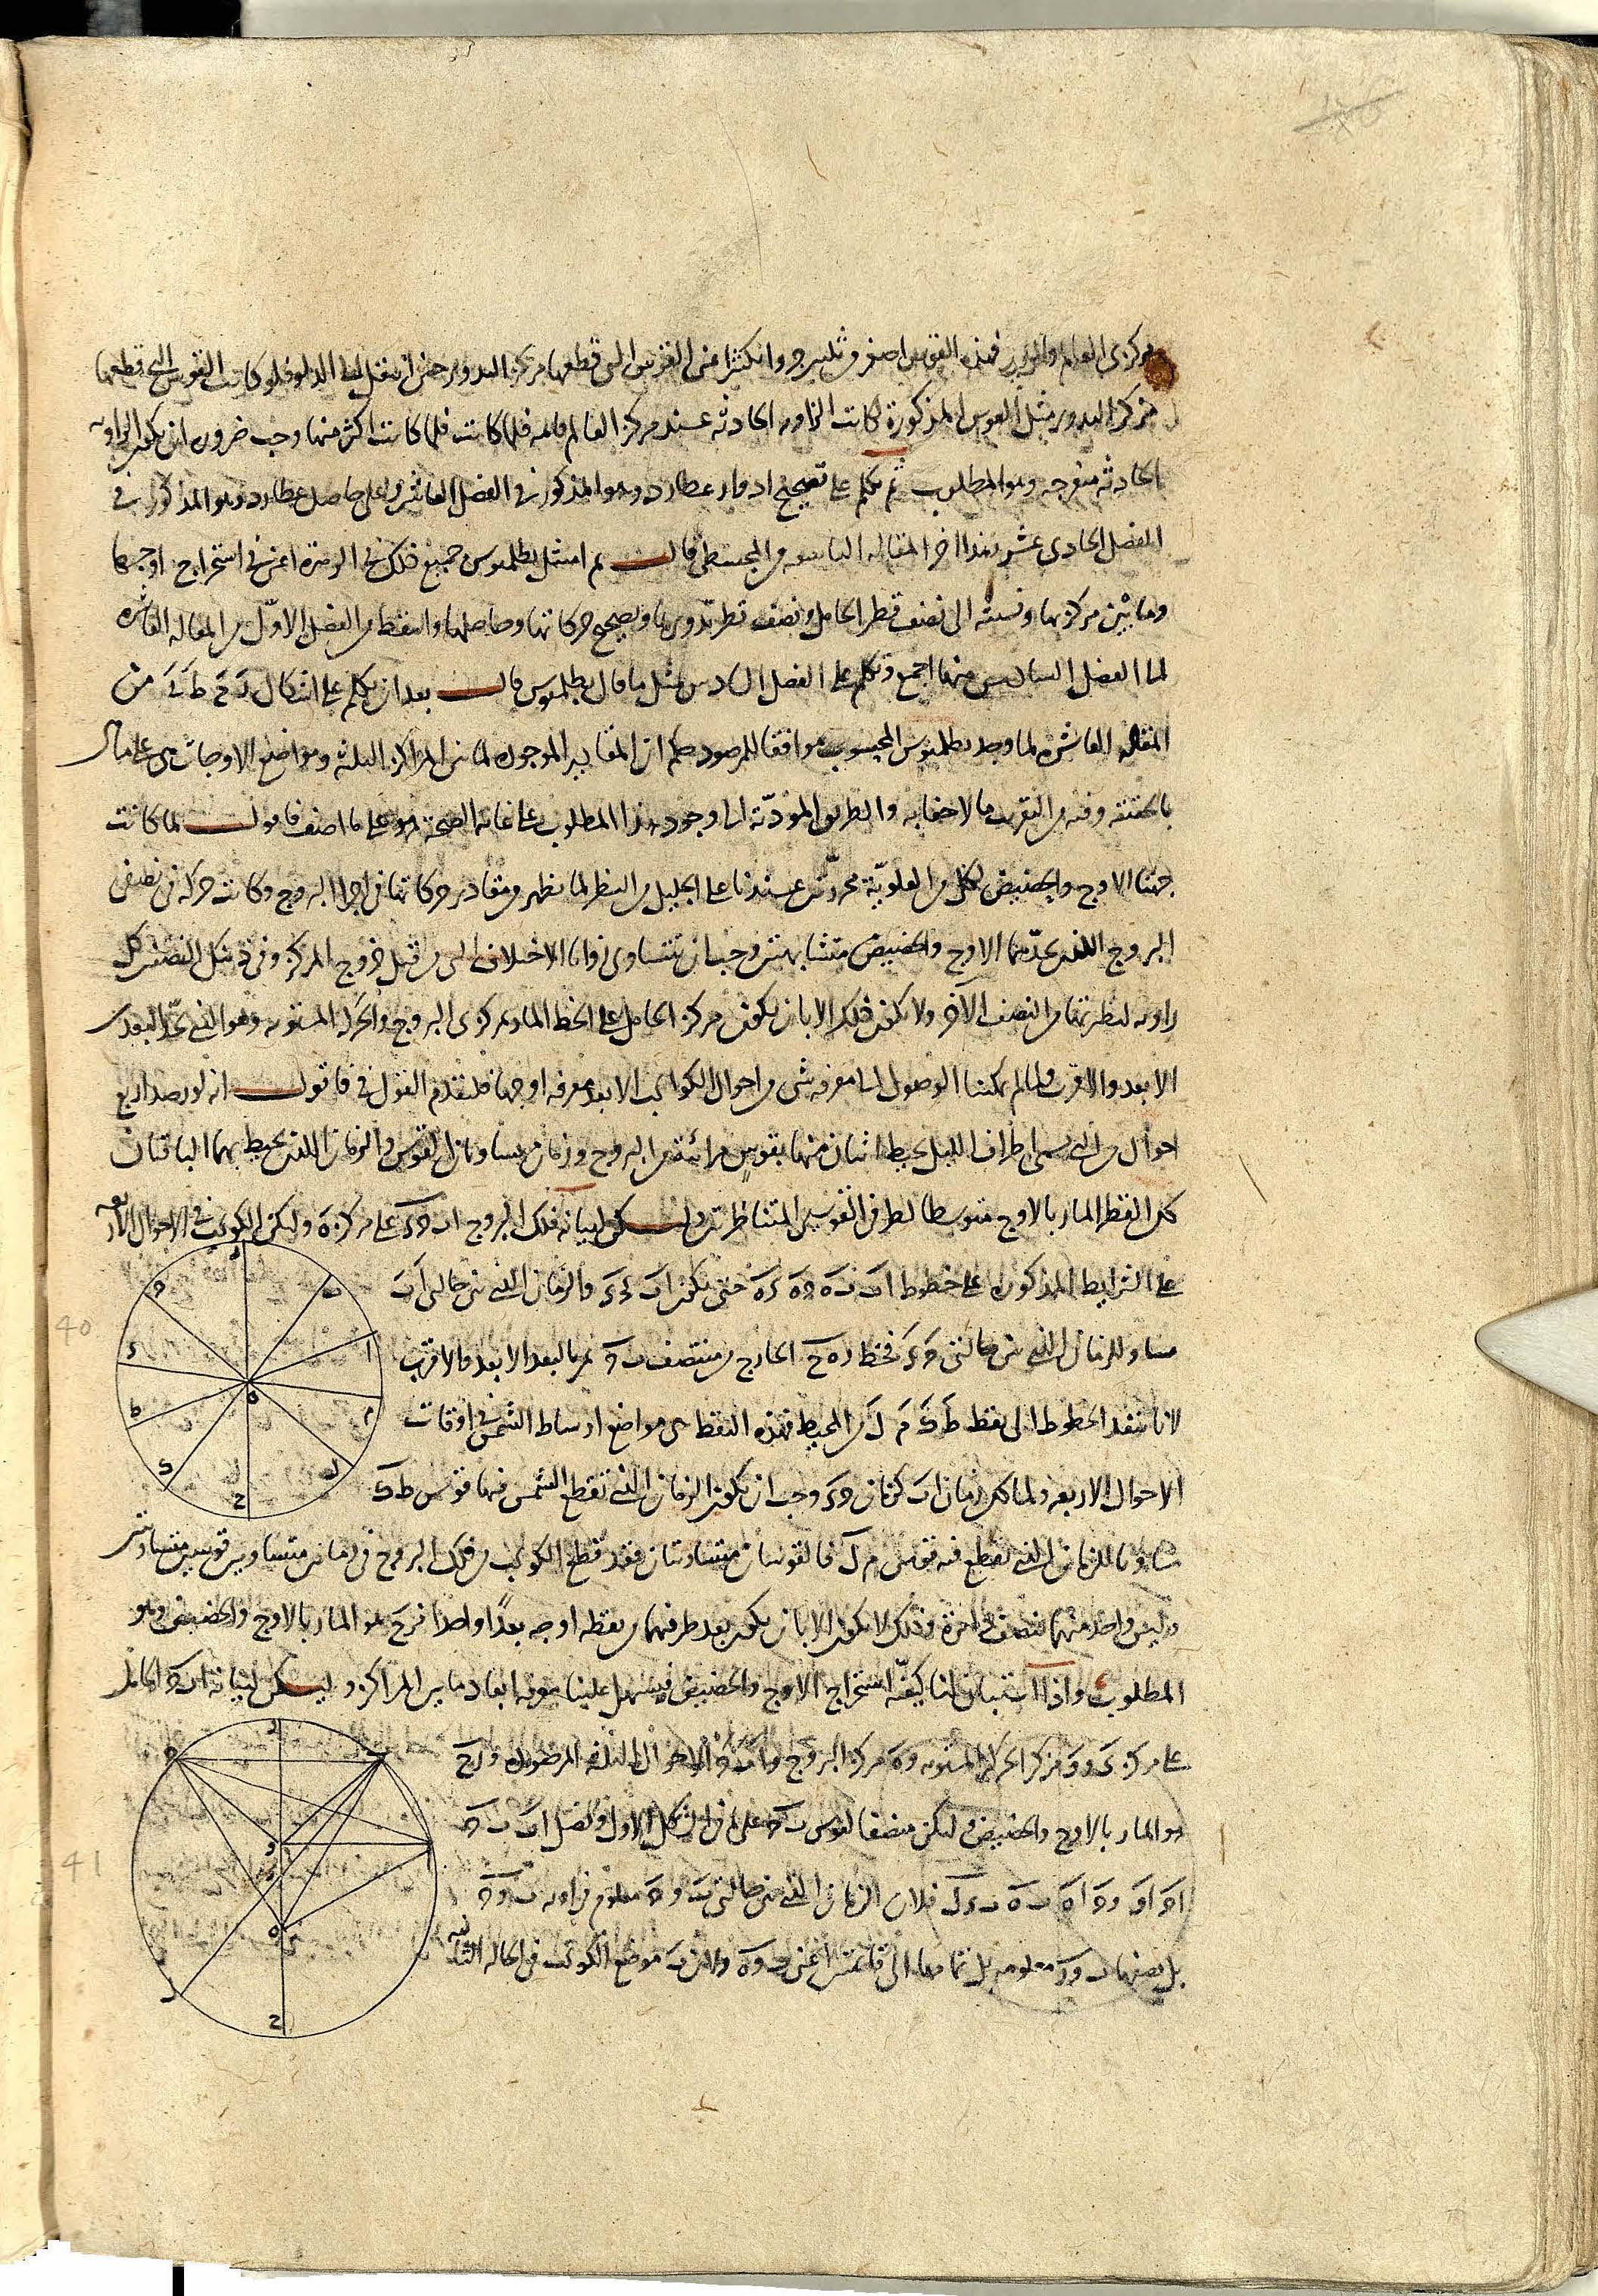 مركزى العالم والمدير فهذه القوس اصغر من ثلث برج وانكثرا من القوس التى قطعها مركز التدوير حتى انتقل الى الدلو فلو كانت القوس التى قطعها
مركز التدوير مثل القوس المذكورة لكانت الزاويه الحادثه عند مركز العالم قائمه فلما كانت فلما كانت اكثر منها وجب ضروره ان يكون الزاويه
الحادثه منفرجه وهو المطلوب ثم تكلم على تصحيح ادوار عطارد وهو المذكور فى الفصل العاشر وعلى حاصل عطارد وهو المذكور فى
الفصل الحادى عشر وهذا اخر المقاله التاسعه من المجسطى قال ثم امتثل بطلميوس جميع ذلك فى الزهرة اعنى فى استخراج اوجها
وما بين مركزيها ونسبته الى نصف قطر الحامل ونصف قطر تدويرها وتصحيح حركاتها وحاصلها واسقط من الفصل الاوّل من المقاله العاشره
الى الفصل السادس منها اجمع وتكلم على الفصل السادس مثل ما قال بطلميوس قال بعد ان تكلم على اشكال ز ح ط ى من
المقاله العاشره لما وجد بطلميوس المحسوب موافقا للمرصود حكم ان المقادير الموجوده لما بين المراكز الثلثه ومواضع الاوجات هى على ما هى
بالحقيقه وفيه من التقريب ما لا خفا به والطريق المودّيه الى وجود هذا المطلوب على غايه الصحة هو على ما اصف فاقول لما كانت
جهتا الاوج والحضيض لكل من العلويّة محدودتين عندنا على الجليل من النظر لما يظهر من مقادير حركاتها فى اجزا البروج وكانت حركه فى نصفى
البروج اللذين يحدّهما الاوج والحضيض متشابهتين وجب ان تتساوى زوايا الاختلاف التى من قبل خروج المركز وفى ذينك النصفين كل
زاويه لنظيرتها من النصف الاخر ولا يكون ذلك الا بان يكون مركز الحامل على الخط المار بمركزى البروج والحركه المستويه وهو الذى يحدّ البعدين
الابعد والاقرب ولما لم يمكننا الوصول الى معرفه شى من احوال الكواكب الا بعد معرفه اوجها فلنقدم القول فى فاقول انه لو رصد اربع
احوال من التى تسمى اطراف الليل يحيط اثنان منها بقوس من دائرة البروج وزمان يساويان القوس والزمان اللذين يحيط بهما الباقيتان
كان القطر المار بالاوج متوسطا لطرفى القوسين المتناظرتين وليكن لبيانه فلك البروج اب جد على مركز ه وليكن الكوكب فى الاحوال الاربعه
على الشرايط المذكوره على خطوط اه به جه ده حتى يكون اب كجد والزمان الذى بين حالتى اب
مساو للزمان الذى بين حالتى جد فخط زه ح الخارج من منتصف ب ج يمر بالبعد الابعد والاقرب
لانا ننفد الخطوط الى نقط ط ك م ل من المحيط فهذه النقط هى مواضع اوساط الشمس فى اوقات
الاحوال الاربعه ولما كان زمان اب كزمان جد وجب ان يكون الزمان الذى تقطع الشمس فيها قوس ط ك
مساويا للزمان الذى تقطع فيه قوس م ل فالقوسان متساويتان فقد قطع الكوكب من فلك البروج فى زمانين متساويين قوسين متساويتين
وليس واحد منهما منصف فى اخرة وذلك لا يكون الا بان يكون بعد طرفيهما من نقطه اوجه بعدًا واحدا فزح هو المار بالاوج والحضيض وهو
المطلوب واذا استبان لنا كيفيّه استخراج الاوج والحضيض فيسهل علينا معرفه ابعاد ما بين المراكز وليكن لبيانه اب ج الحامل
على مركز د و مركز الحركه المستويه و ه مركز البروج وا ب ج الاحوال الثلثه المرصوده و زح
هو المار بالاوج والحضيض وليكن منصفا لقوس ب ج على ما فى الشكل الاول ونصل اب ب ج
اج او وج اه ب ه ب د ل فلان الزمان الذى بين حالتى ب و ج معلوم فزاويه ب و ج
بل نصفها ب وز معلومه بل تمامها الى قائمتين اعنى ب و ه ولان ب موضع الكوكب فى الحاله الثانيه
40
41